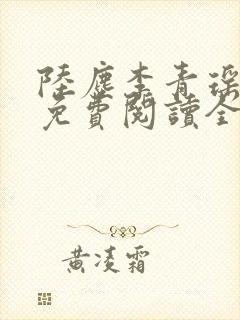 陸塵李青瑤
免費閱讀全
黃凌霜